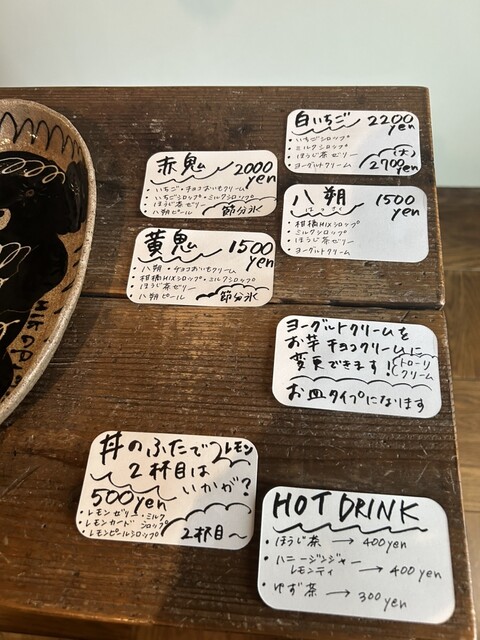 白いちご 2200 yen
・いちごシロップ
・ミルクシロップ
・ほうじ茶ゼリー
・ヨーグルトクリーム
(大) 2700 yen
赤鬼 2000 yen
・いちご・チョコおいもクリーム
・いちごシロップ・ミルクシロップ
・ほうじ茶ゼリー
・八朔ピール
節分氷
八朔 1500 yen
はっさく
・柑橘MIXシロップ
・ミルクシロップ
・ほうじ茶ゼリー
・ヨーグルトクリーム
黄鬼 1500 yen
・八朔・チョコおいもクリーム
・柑橘MIXシロップ・ミルクシロップ
・ほうじ茶ゼリー
・八朔ピール
節分氷
ヨーグルトクリームを
お芋チョコクリームに
変更できます!
トローリ
クリーム
お皿タイプになります
丼のふたで レモン
2杯目は
500yen いかが?
・レモンゼリー・ミルク
・レモンカード シロップ
・レモンピールシロップ
2杯目〜
HOT DRINK
・ほうじ茶 → 400yen
・ハニージンジャー
レモンティ → 400yen
・ゆず茶 → 300yen